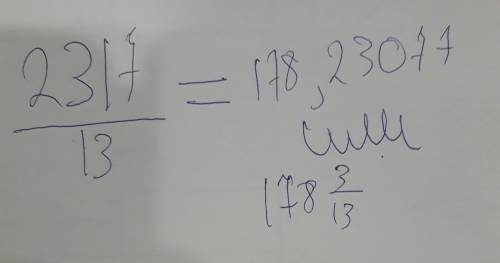 2317/13 = 178,23077
или
178 3/13